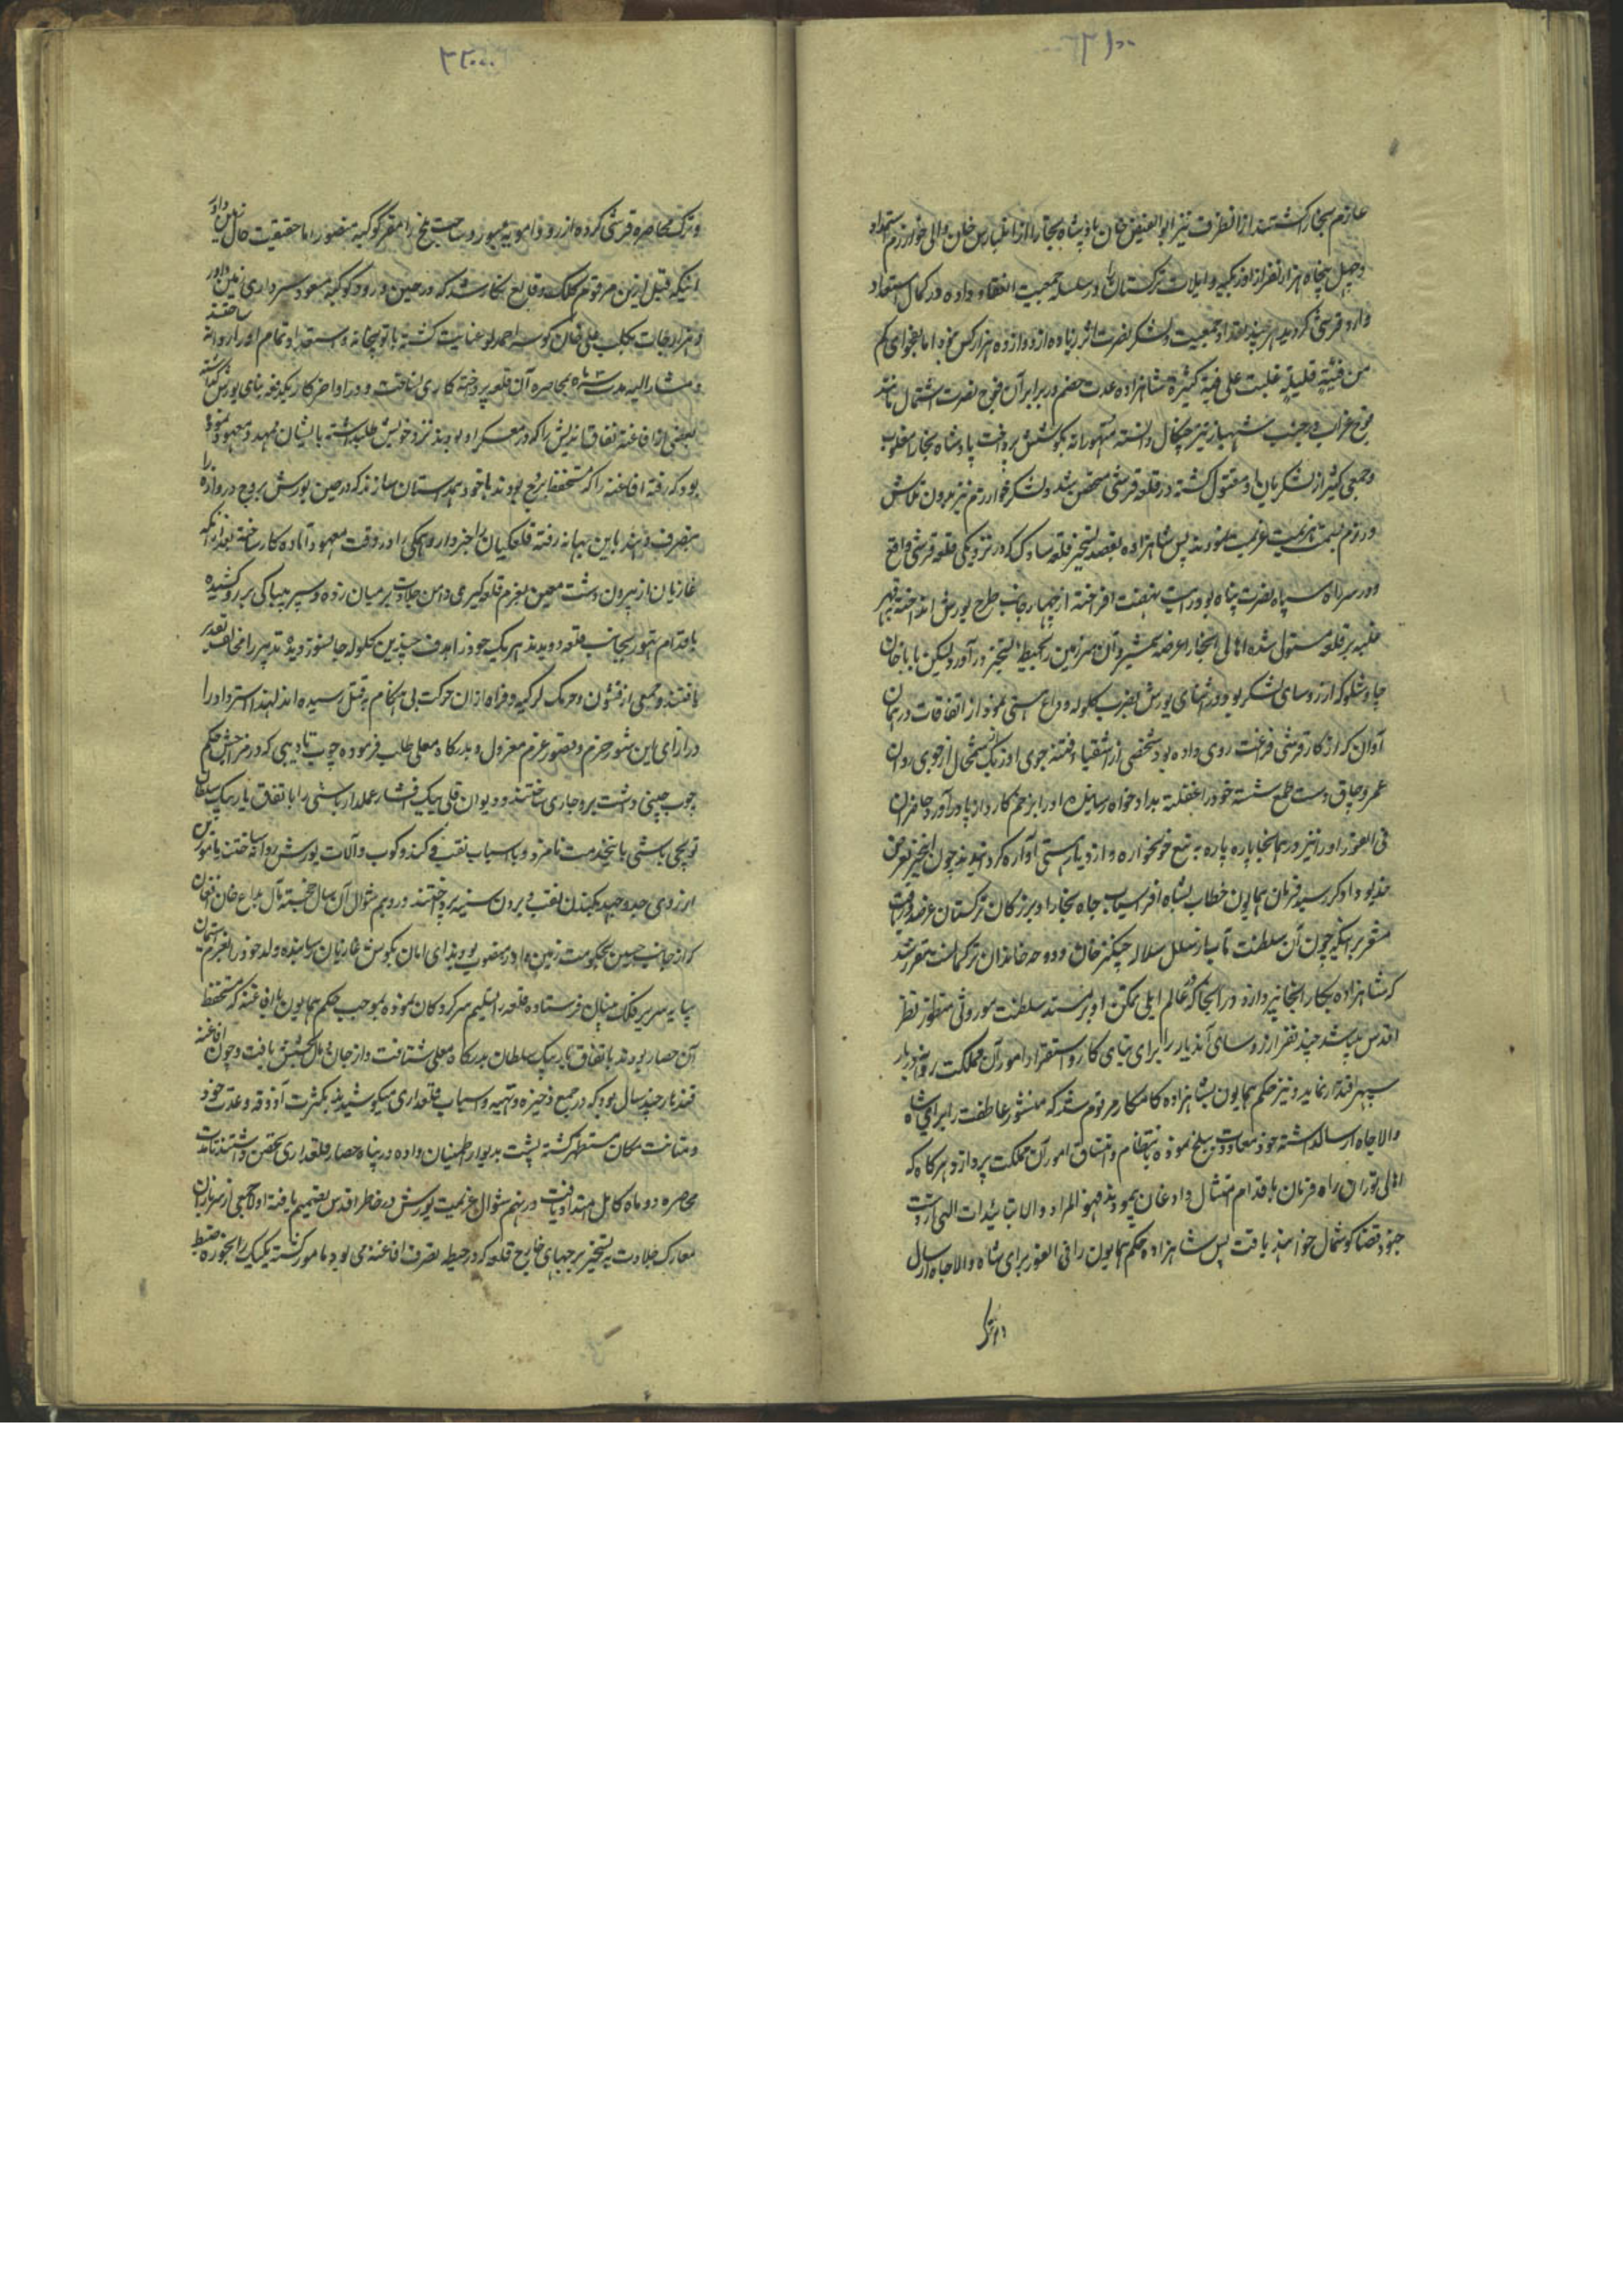 عازم بخارا کشتند از انطرف نیز ابوالفیض خان پادشاه بخارا از ایلبارس خان والی خوارزم استمداد
و چهل پنجاه هزار نفر از اوزبکیه و ایلات ترکستان در سلسله جمعیت انعقاد داده در کمال استعداد
وارد قرشی کردید هر چند تعداد جمعیت لشکر نصرت اثر زیاده از دوازده هزار کس نبود اما بفحوای کم
من فئیته قلیلیة غلبت علی فیة کثیرة شاهزاده عدت خصم در برابر آن فوج نصرت اشتمال مانند
فوج غراب در جنب شهباز تیز چنکال دانسته متهورانه بکوشش پرداخت پادشاه بخارا مغلوب
و جمعی کثیر از لشکریان او مقتول کشته در قلعه قرشی متحصن شد و لشکر خوارزم نیز بدون تلاش
و رزم بسمت هزیمت عزیمت نمودند پس شاهزاده بقصد تسخیر قلعه شلوک که در نزدیکی قلعه قرشی واقع
و در سر راه سپاه نصرت پناه بود رایت نهضت افراخته از چهار جانب طرح یورش انداخته بقهر
غلبه بر قلعه مستولی شده اهالی انجا را عرضه شمشیر و آن سرزمین را بحیطه تسخیر در آورد لیکن بابا خان
چاوشلو که از روسای لشکر بود در اثنای یورش بضرب کلوله وداع هستی نمود از اتفاقات در همان
آوان که از کار قرشی فراغت روی داده بود شخصی از اشقیاء فتنه جوی اوزبک شمخال از جوی روان
عمر و چاق دست طمع شسته خود را غفلتة بداد خواه رسانیده او را بزخم کارد از پا در آورد حاضران
فی الفور او را نیز در همانجا پاره پاره به تیغ خونخواره و از دیار هستی آواره کردانیدند چون اینخبر بعرض
خدیو دادکر رسید فرمان همایون خطاب بشاه افراسیاب جاه بخارا و بزرکان ترکستان عز صدور یافت
مشعر بر اینکه چون آن سلطنت مآب از نسل سلاله چنکیز خان و دوحه خاندان ترکمانست مقرر شد
که شاهزاده بکار انجا نپردازد و در انجا که عالم ایلی تمکن او بر مسند سلطنت موروثی منظور نظر
اقدس میباشد چند نفر از روسای آندیار را برای بنای کار و استقرار امور آن مملکت روانه دربار
سپهر اقتدار نماید و نیز حکم همایون بشاهزاده کامکار مرقوم شد که منشور عاطفت را برای شاه
والاجاه ارسال داشته خود معاودت ببلخ نموده بانتظام و اتساق امور آن مملکت پردازد و هرکاه که
اهالی توران راه فرمان باقدام امتثال و اذعان پیمودند فهو المراد و الا بتائیدات الهی از دست
جنود قضا کوشمال خواهند یافت پس شاهزاده بحکم همایون را فی الفور برای شاه والاجاه ارسال
و ترک
و ترک محاصره قرشی کرده از رود امویه عبور و ساحت بلخ را مقر کوکبه منصور اما حقیقت حال زمین داور
اینکه قبل ازین مرقوم کلک وقایع نکار شد که در حین ورود کوکبه مسعود سرداری زمین داور
و هزارجات بکلب علی خان کوسه احمدلو عنایت کشته با توپخانه و استعداد تمام او را روانه ساختند
و مشار الیه مدت شش ماه بمحاصره آن قلعه پرداخته کاری نساخت و در اواخر کار یکدفعه بنای یورش کذاشته
بعضی از افاغنه نفاق اندیش را که در معسکر او بودند نزد خویش طلبداشته با ایشان تمهید و معهود نموده
بود که رفته افاغنه را که مستحفظ برج بودند با خود همداستان سازند که در حین یورش بروج دروازه را
بتصرف دهند باین بهانه رفته قلعکیان را خبردار و همکی را در وقت معهود آماده کار ساخته بعد از انکه
غازیان از بیرون دشت معین بعزم قلعه کیری دامن جلادت بر میان زده و سپر بیباکی بر رو کشیده
باقدام تهور بجانب قلعه دویدند هر یک خود را هدف چندین کلوله جانسوز دیده تدبیر را مخالف تقدیر
یافتند و جمعی از قشون و حرمک لرکیه و فراه از آن حرکت بی هنکام به قتل رسیده اند لهذا سردار را
در ازای این شور حزم و قصور عزم معزول و بدرکاه معلی طلب فرموده چوب تادیبی که در مزاحش حکم
چوب چینی داشت برو جاری ساختند و دیوان قلی بیک افشار عملدار باشی را باتفاق یار بیک سلطان
توپچی باشی باینخدمت نامزد و با اسباب نقب و کمند و کوب و آلات یورش روانه ساختند مامورین
از روی جد و جهد بکندن نقب و بردن سیبه پرداختند و در دویم شوال آن سال خجسته مآل بداغ خان افغان
که از جانب حسین بحکومت زمین داور منصوب بود ندای امان بکوش غازیان رسانیده ولد خود را بعزم استیمان
بپایه سریر فلک مبنای فرستاده قلعه را تسلیم سرکردکان نموده بموجب حکم همایون با افاغنه که مستحفظ
آن حصار بودند باتفاق یار بیک سلطان بدرکاه معلی شتافت و از جان و مال بخشش یافت و چون افاغنه
قندهار چند سال بود که در جمع ذخیره و تهیه و اسباب قلعداری میکوشیدند بکثرت آذوقه و عدت خود
و متانت مکان مستظهر کشته پشت بدیوار اطمینان داده در پناه حصار قلعداری تحصن داشتند تا مدت
محاصره دو ماه کامل امتداد یافت در نهم شوال عزیمت یورش در خاطر اقدس تصمیم یافته اولا جمعی از سربازان
معارک جلادت به تسخیر برجهای خارج قلعه که در حیطه تصرف افاغنه می بود مامور کشته یک یک را بحوزه ضبط